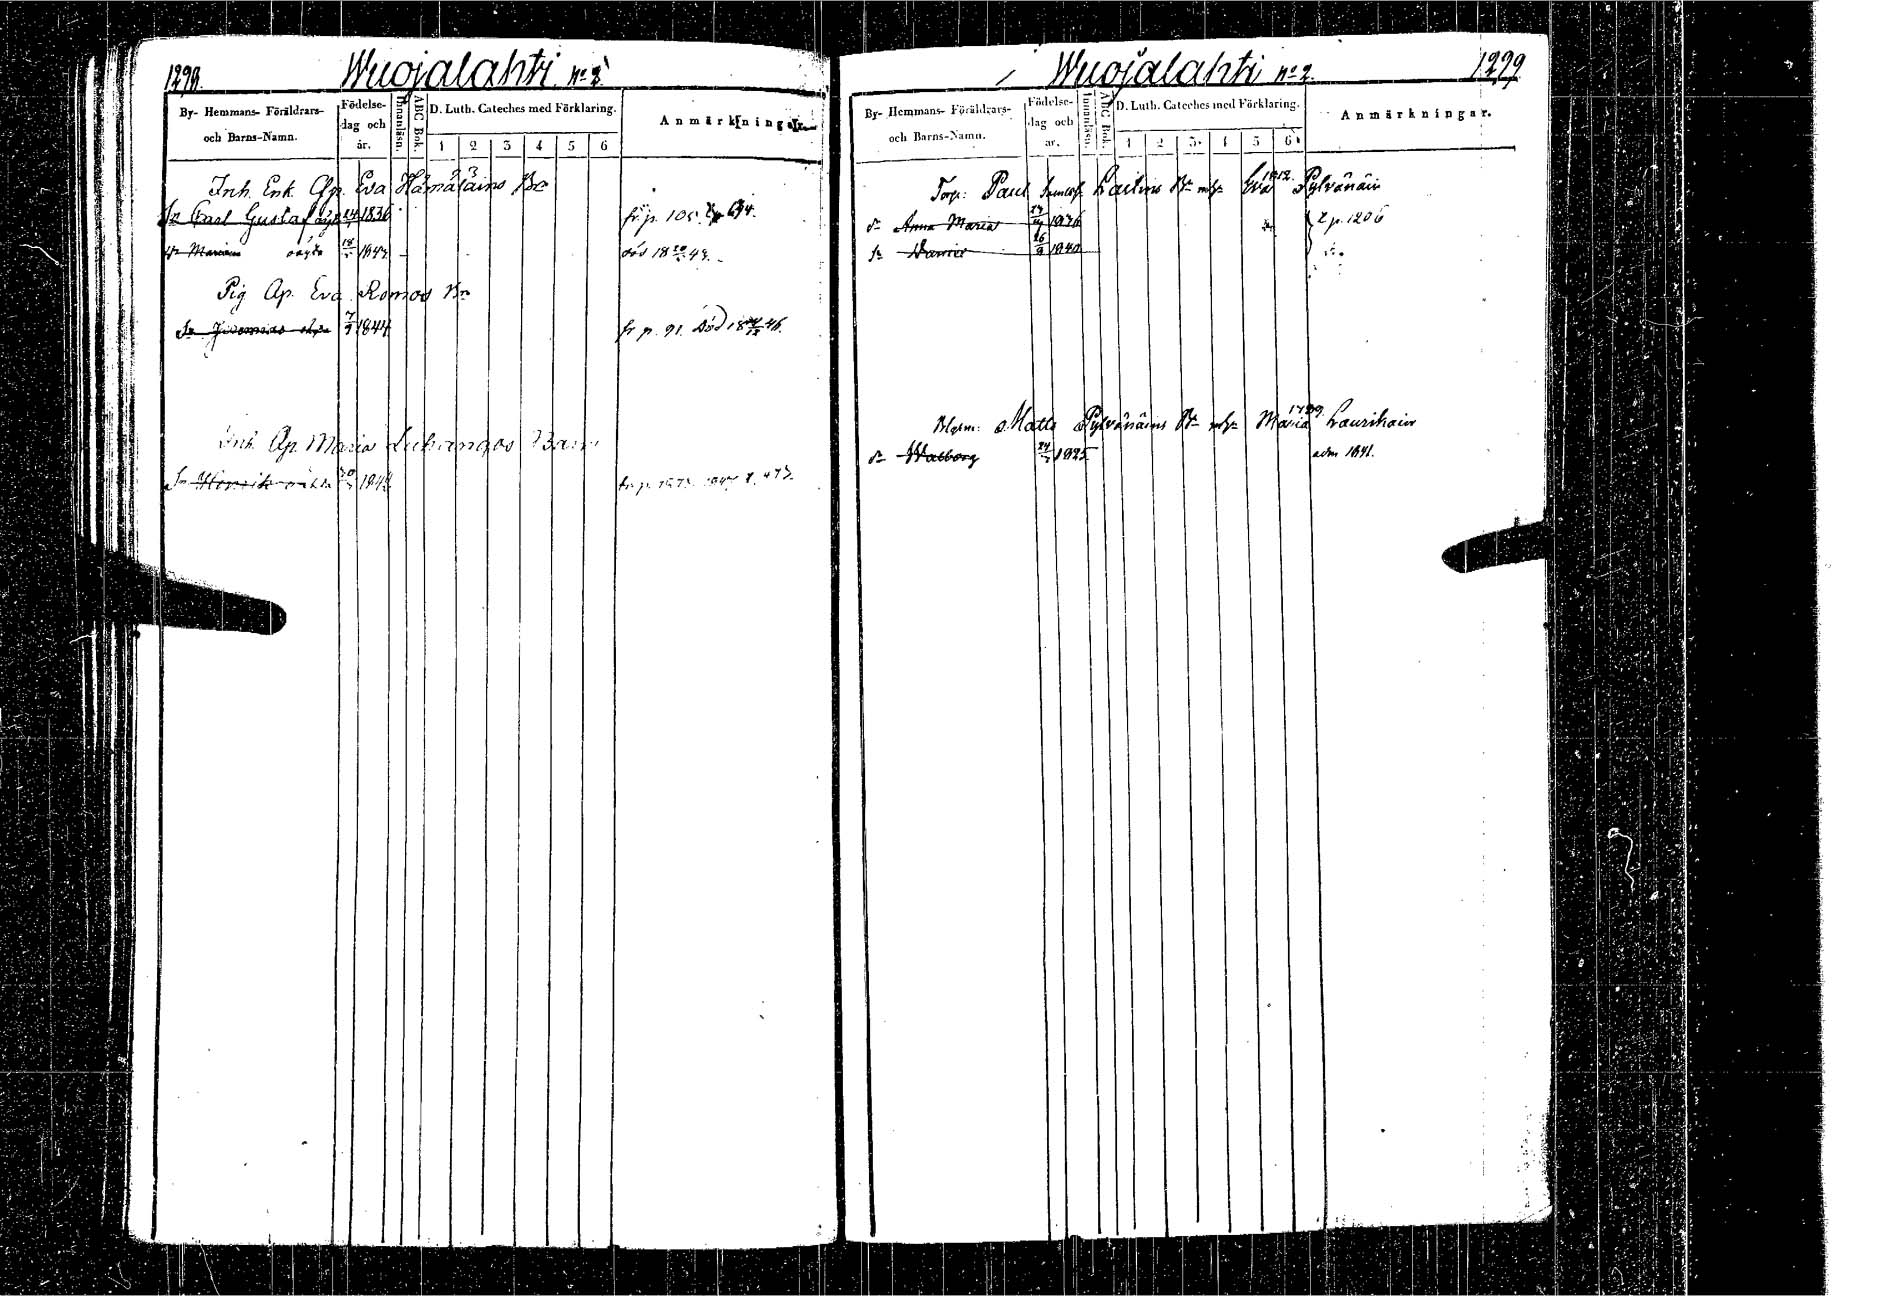 1298. Wuojalahti nº 2
By- Hemmans- Föräldrars- och Barns-Namn.
Födelse- dag och år.
Innanläsn.
ABC Bok.
D. Luth. Cateches med Förklaring.
1 2 3 4 5 6
Anmärkningar.
Inh. Enk. Ap. Eva Hämäläins Bn
Sn Carl Gustaf 1836 fr. p. 105.
Maria oäkta 1843 död 18 43.
Pig Ap. Eva Romos Bn
Sn Jeremias 7/9 1844 fr p. 91. Död 18 46.
Inh. Ap. Maria Barn
Sn Henrik oäkta fr. p.
Wuojalahti nº 2. 1299
By- Hemmans- Föräldrars- och Barns-Namn.
Födelse- dag och år.
Innanläsn.
ABC Bok.
D. Luth. Cateches med Förklaring.
1 2 3 4 5 6
Anmärkningar.
Torp: Paul Laitins Bn m h Eva 1812 Pylvänäin
dr Anna Maria 1836 t p. 1206
Sn 26/9 1840
Matts Pylvänäins Bn m h Maria Laurikain
dr Walborg 24 1825 adm 1841.